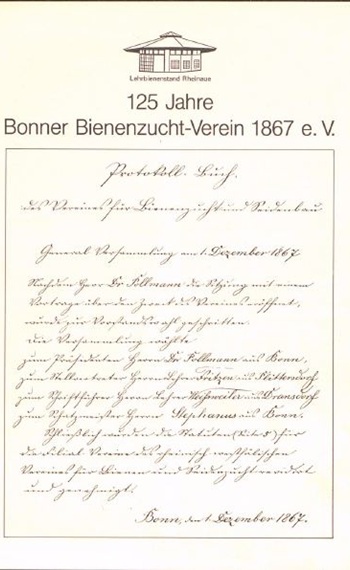 Lehrbienenstand Rheinaue
125 Jahre
Bonner Bienenzucht-Verein 1867 e. V.
Protokoll-Buch.
des Vereines für Bienenzucht und Seidenbau
General Versammlung am 1. Dezember 1867
Nachdem Herr Dr. Föllmann die Sitzung mit einem
Vortrage über den Zweck des Vereines eröffnet,
wurde zur Vorstandswahl geschritten.
Die Versammlung wählte
zum Präsidenten Herrn Dr. Föllmann aus Bonn,
zum Stellvertreter Herrn Lehrer Fritzen aus
zum Schriftführer Herrn Lehrer aus Dransdorf
zum Schatzmeister Herrn Stephanus aus Bonn.
Schließlich wurden die Statuten (Seite ) für
die Filial Vereine des rheinisch westfälischen
Vereines für Bienen und Seidenzucht
und genehmigt.
Bonn, den 1. Dezember 1867.